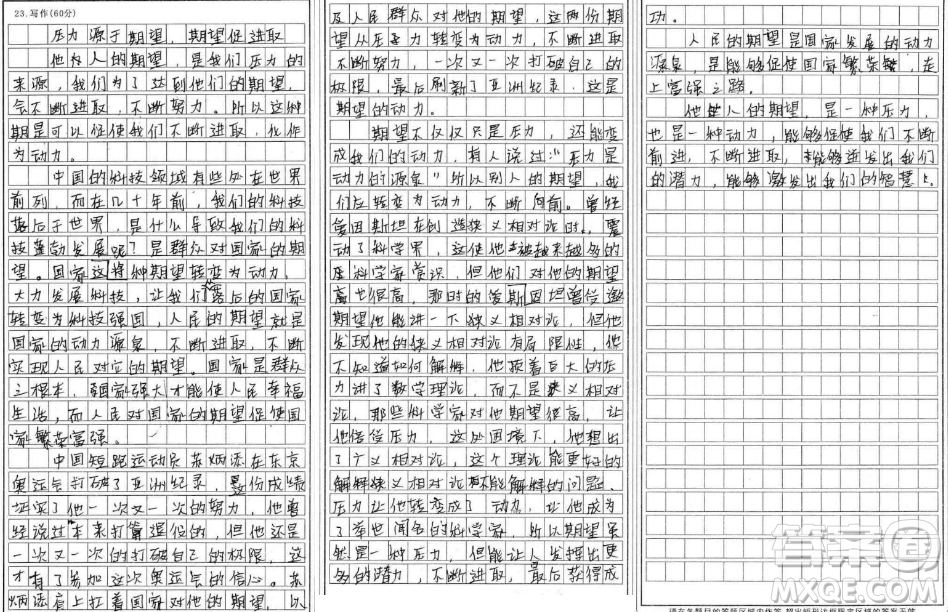 23.写作(60分)
压力源于期望，期望促进取
他为人的期望，是我们压力的
来源，我们为了达到他们的期望，
会不断进取，不断努力。所以这种
期是可以促使我们不断进取，化作
为动力。
中国的科技领域有些处在世界
前列，而在几十年前，我们的科技
落后于世界，是什么导致我们的科
技蓬勃发展呢？是群众对国家的期
望。国家这将种期望转变为动力，
大力发展科技，让我们落后的国家
转变为科技强国，人民的期望就是
国家的动力源泉，不断进取，不断
实现人民对它的期望。国家是群众
之根本，强国家强大才能使人民幸福
生活，而人民对国家的期望促使国
家繁荣富强。
中国短跑运动员苏炳添在东京
奥运会打破了亚洲纪录，这份成绩
证实了他一次又一次的努力，他曾
经说过本来打算退役的，但他还是
一次又一次的打破自己的极限，这
才有了参加这次奥运会的信心。苏
炳添肩上扛着国家对他的期望，以
及人民群众对他的期望，这两份期
望从压力转变为动力，不断进取
不断努力，一次又一次打破自己的
极限，最后刷新了亚洲纪录，这是
期望的动力。
期望不仅仅只是压力，还能变
成我们的动力，有人说过“压力是
动力的源泉”所以别人的期望，我
们应转变为动力，不断向前。曾经
爱因斯坦在创造狭义相对论时，震
动了科学界，这使他被越来越多的
科学家赏识，但他们对他的期望
高也很高，那时的爱斯因坦曾信邀
期望他能进一下狭义相对论，但他
发现他的狭义相对论有局限性，他
不知道如何解解，他顶着巨大的压
力讲了数学理论，而不是狭义相对
论，那些科学家对他期望很高，让
他倍偿压力，这处困境下，他想出
了广义相对论，这个理论能更好的
解解狭义相对论不能解解的问题。
压力让他转变成了动力，让他成为
了举也闻名的科学家，所以期望虽
然是一种压力，但能让人发挥出更
多的潜力，不断进取，最后获得成
功。
人民的期望是国家发展的动力
源泉，是能够促使国家繁荣，走
上富强之路。
他人的期望，是一种压力，
也是一种动力，能够促使我们不断
前进，不断进取，能够迸发出我们
的潜力，能够激发出我们的智慧。
答案圈
MXQE.COM